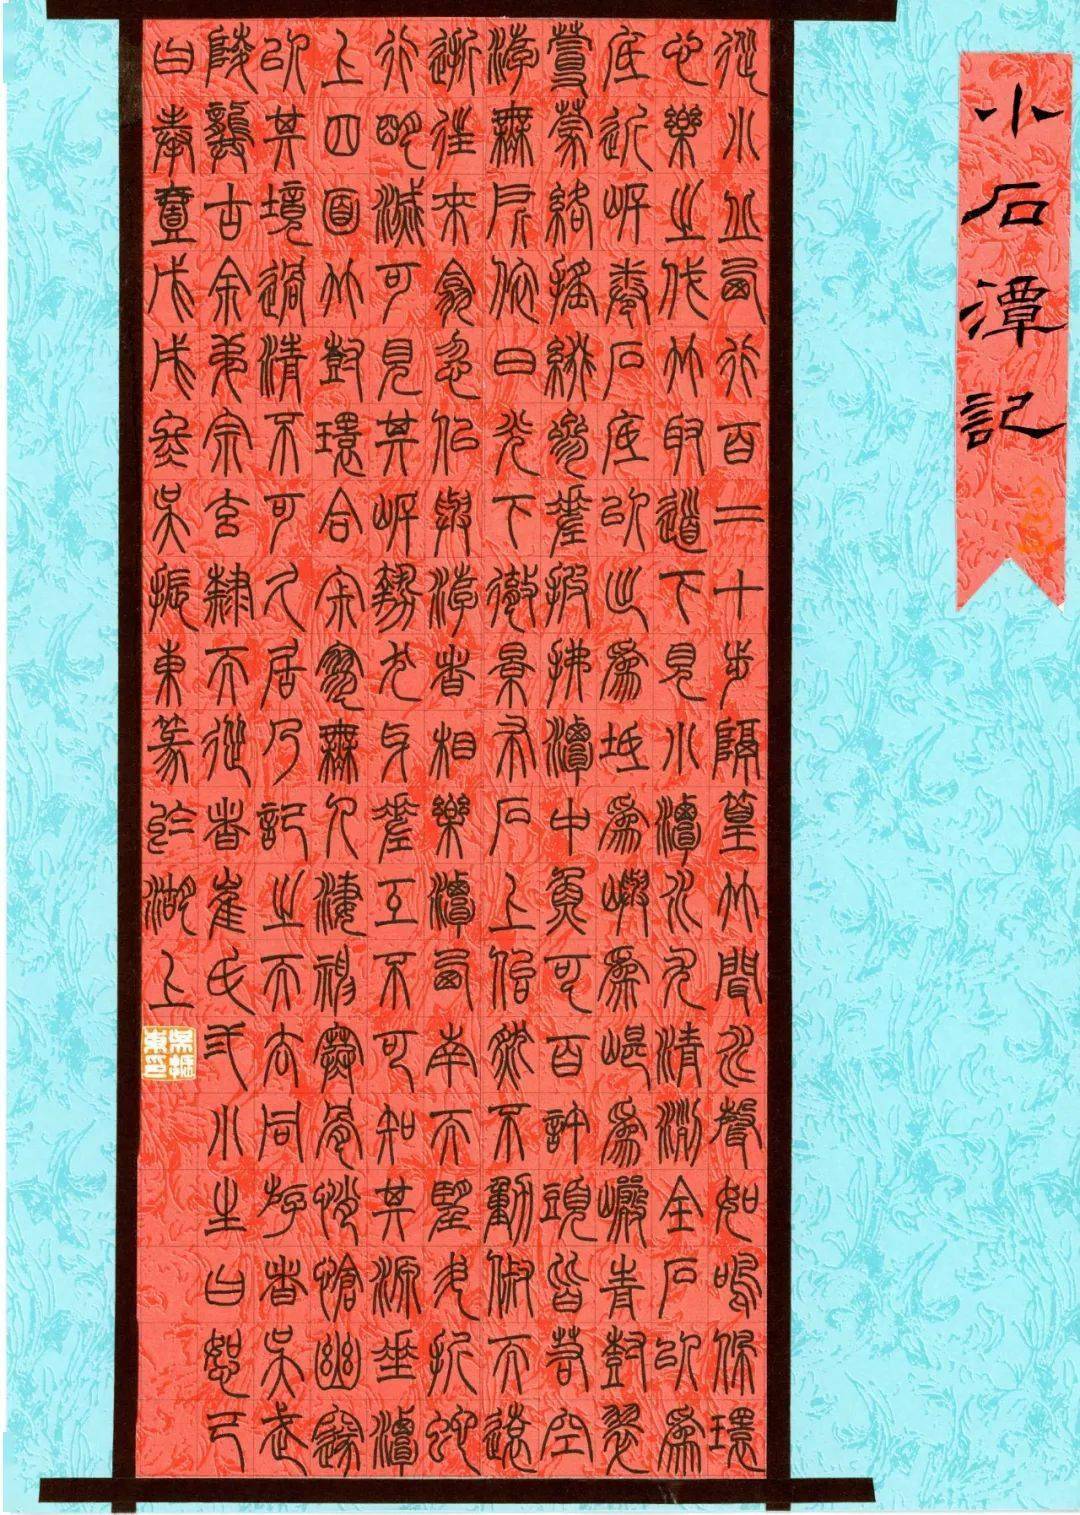 小石潭記
從小丘西行百二十步隔篁竹聞水聲如鳴佩環
心樂之伐竹取道下見小潭水尤清冽全石以為
底近岸卷石底以出為坻為嶼為嵁為巖青樹翠
蔓蒙絡搖綴參差披拂潭中魚可百許頭皆若空
游無所依日光下徹景布石上佁然不動俶而遠
逝往來翕忽似與游者相樂潭西南而望斗折蛇
行明滅可見其岸勢犬牙差互不可知其源坐潭
上四面竹樹環合寂寥無人淒神寒骨悄愴幽邃
以其境過清不可久居乃記之而去同游者吳武
陵龔古余弟宗玄隸而從者崔氏二小生曰恕己
曰奉壹戊戌冬吳振東篆於湖上
吳振東印